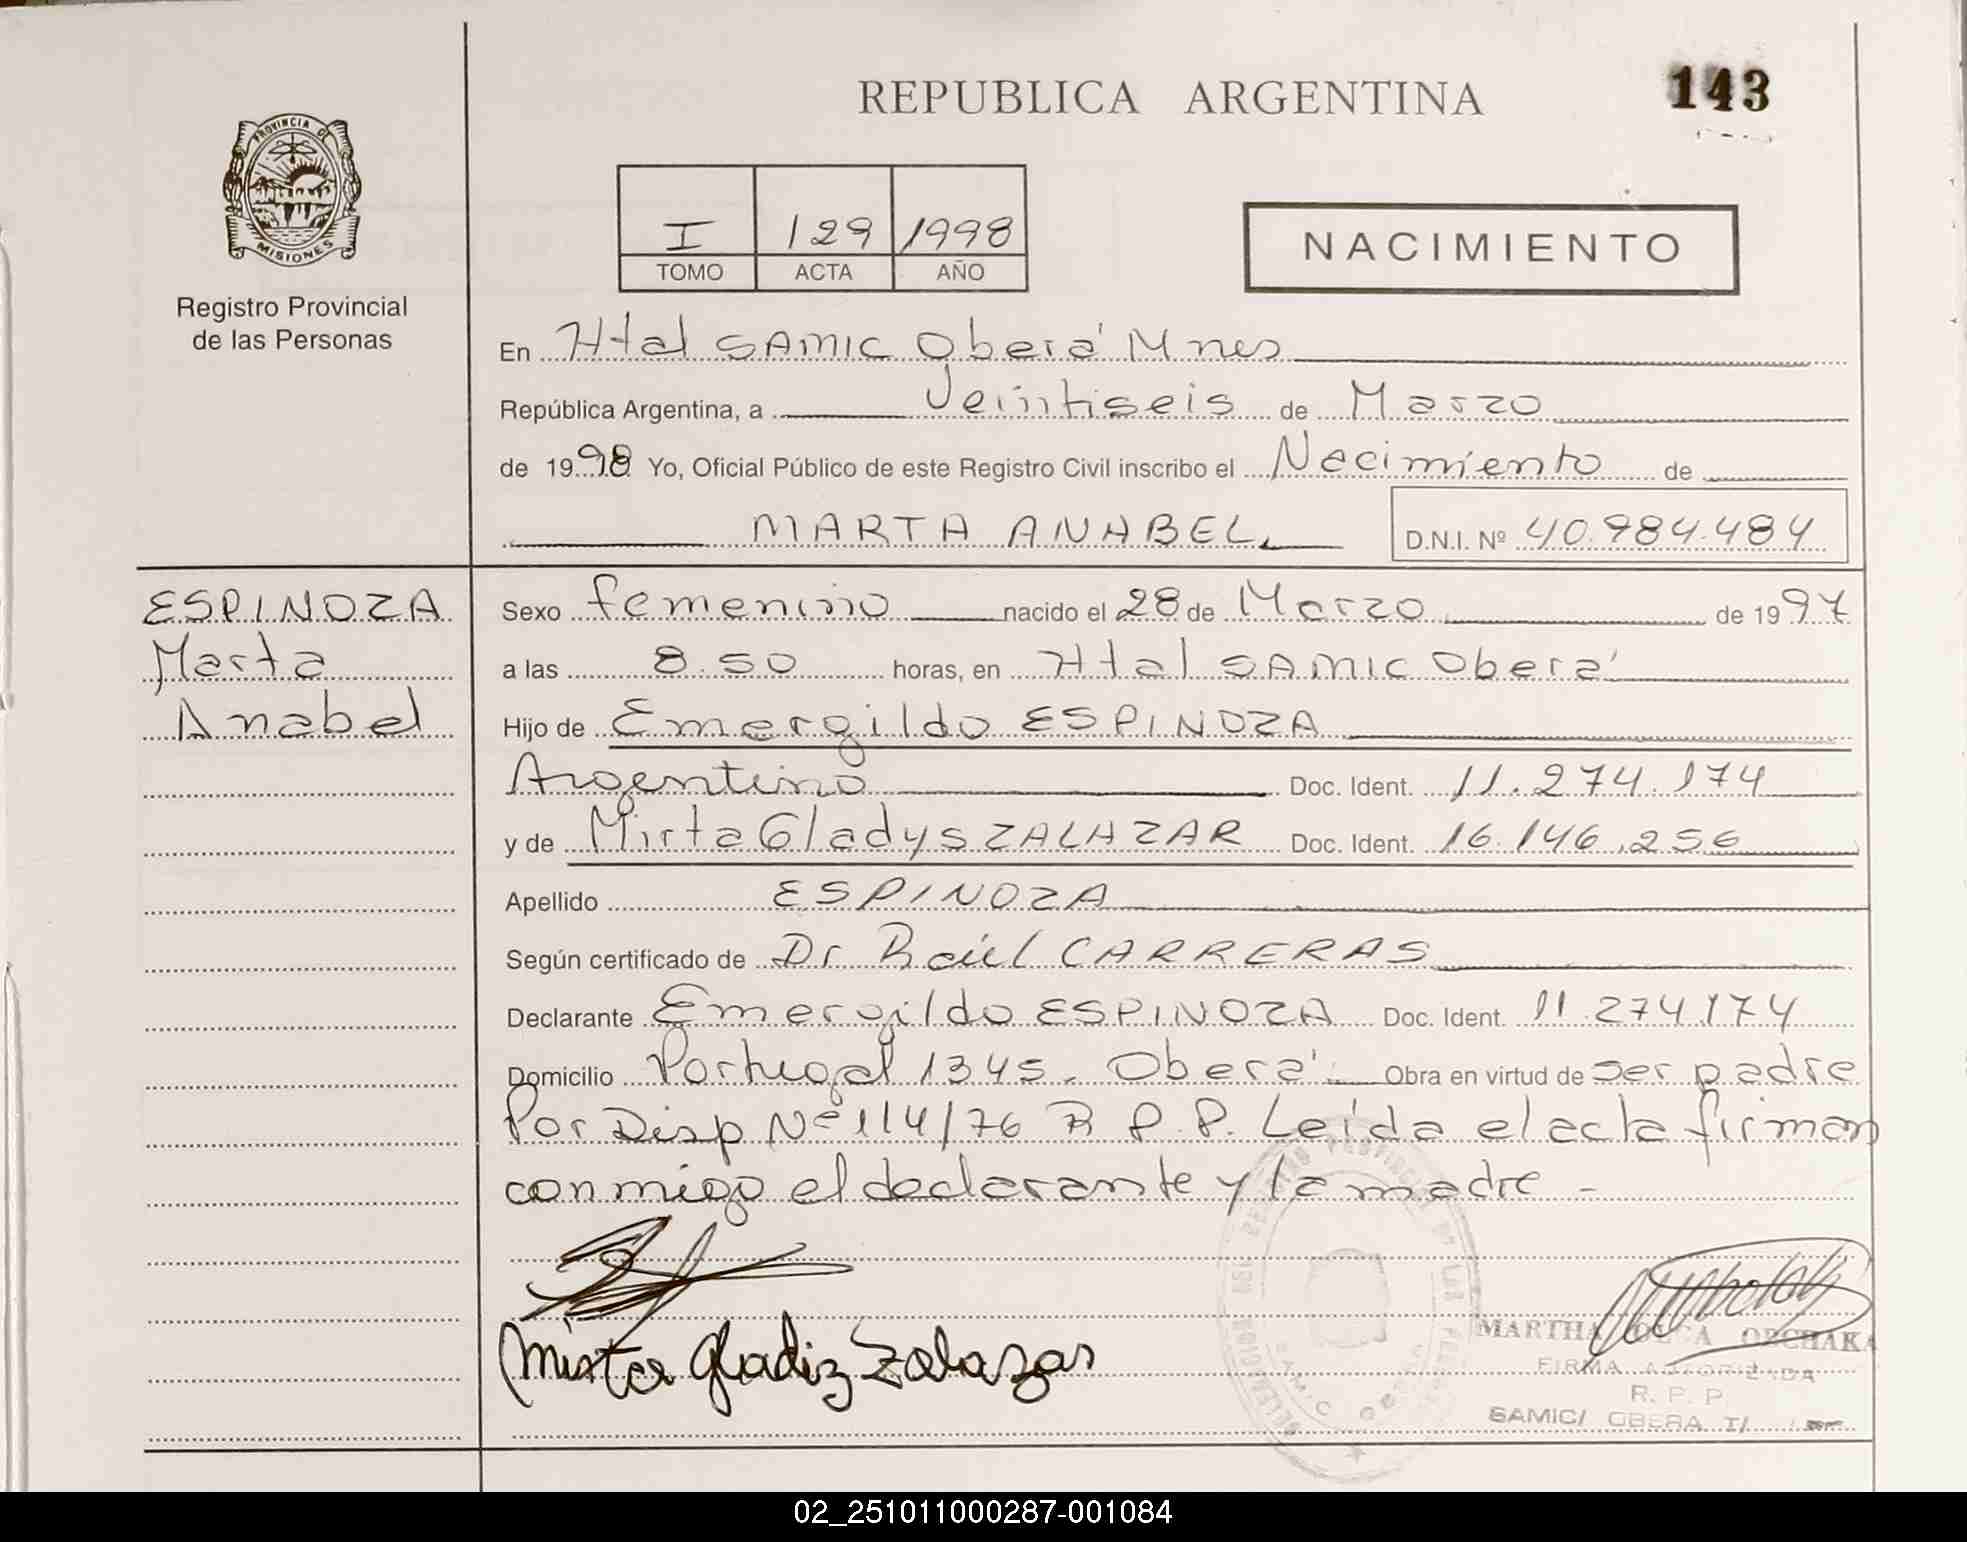 REPUBLICA ARGENTINA
143
PROVINCIA DE
MISIONES
Registro Provincial
de las Personas
I 129 1998
TOMO ACTA AÑO
NACIMIENTO
En Htal SAMIC Oberá Mnes
República Argentina, a Veintiseis de Marzo
de 1998 Yo, Oficial Público de este Registro Civil inscribo el Nacimiento de
MARTA ANABEL
D.N.I. Nº 40.984.484
ESPINOZA
Marta
Anabel
Sexo femenino nacido el 28 de Marzo de 1997
a las 8.50 horas, en Htal SAMIC Oberá
Hijo de Emergildo ESPINOZA
Argentino Doc. Ident. 11.274.174
y de Mirta Gladys ZALAZAR Doc. Ident. 16.146.256
Apellido ESPINOZA
Según certificado de Dr Raúl CARRERAS
Declarante Emergildo ESPINOZA Doc. Ident. 11.274.174
Domicilio Portugal 1345. Oberá Obra en virtud de ser padre
Por Disp Nº 114/76 R P. P. Leída el acta firman
conmigo el declarante y la madre -
Mirta Gladiz Zalazar
MARTHA ORCHAKA
FIRMA AUTORIZADA
R. P. P
SAMIC/ OBERA
02_251011000287-001084